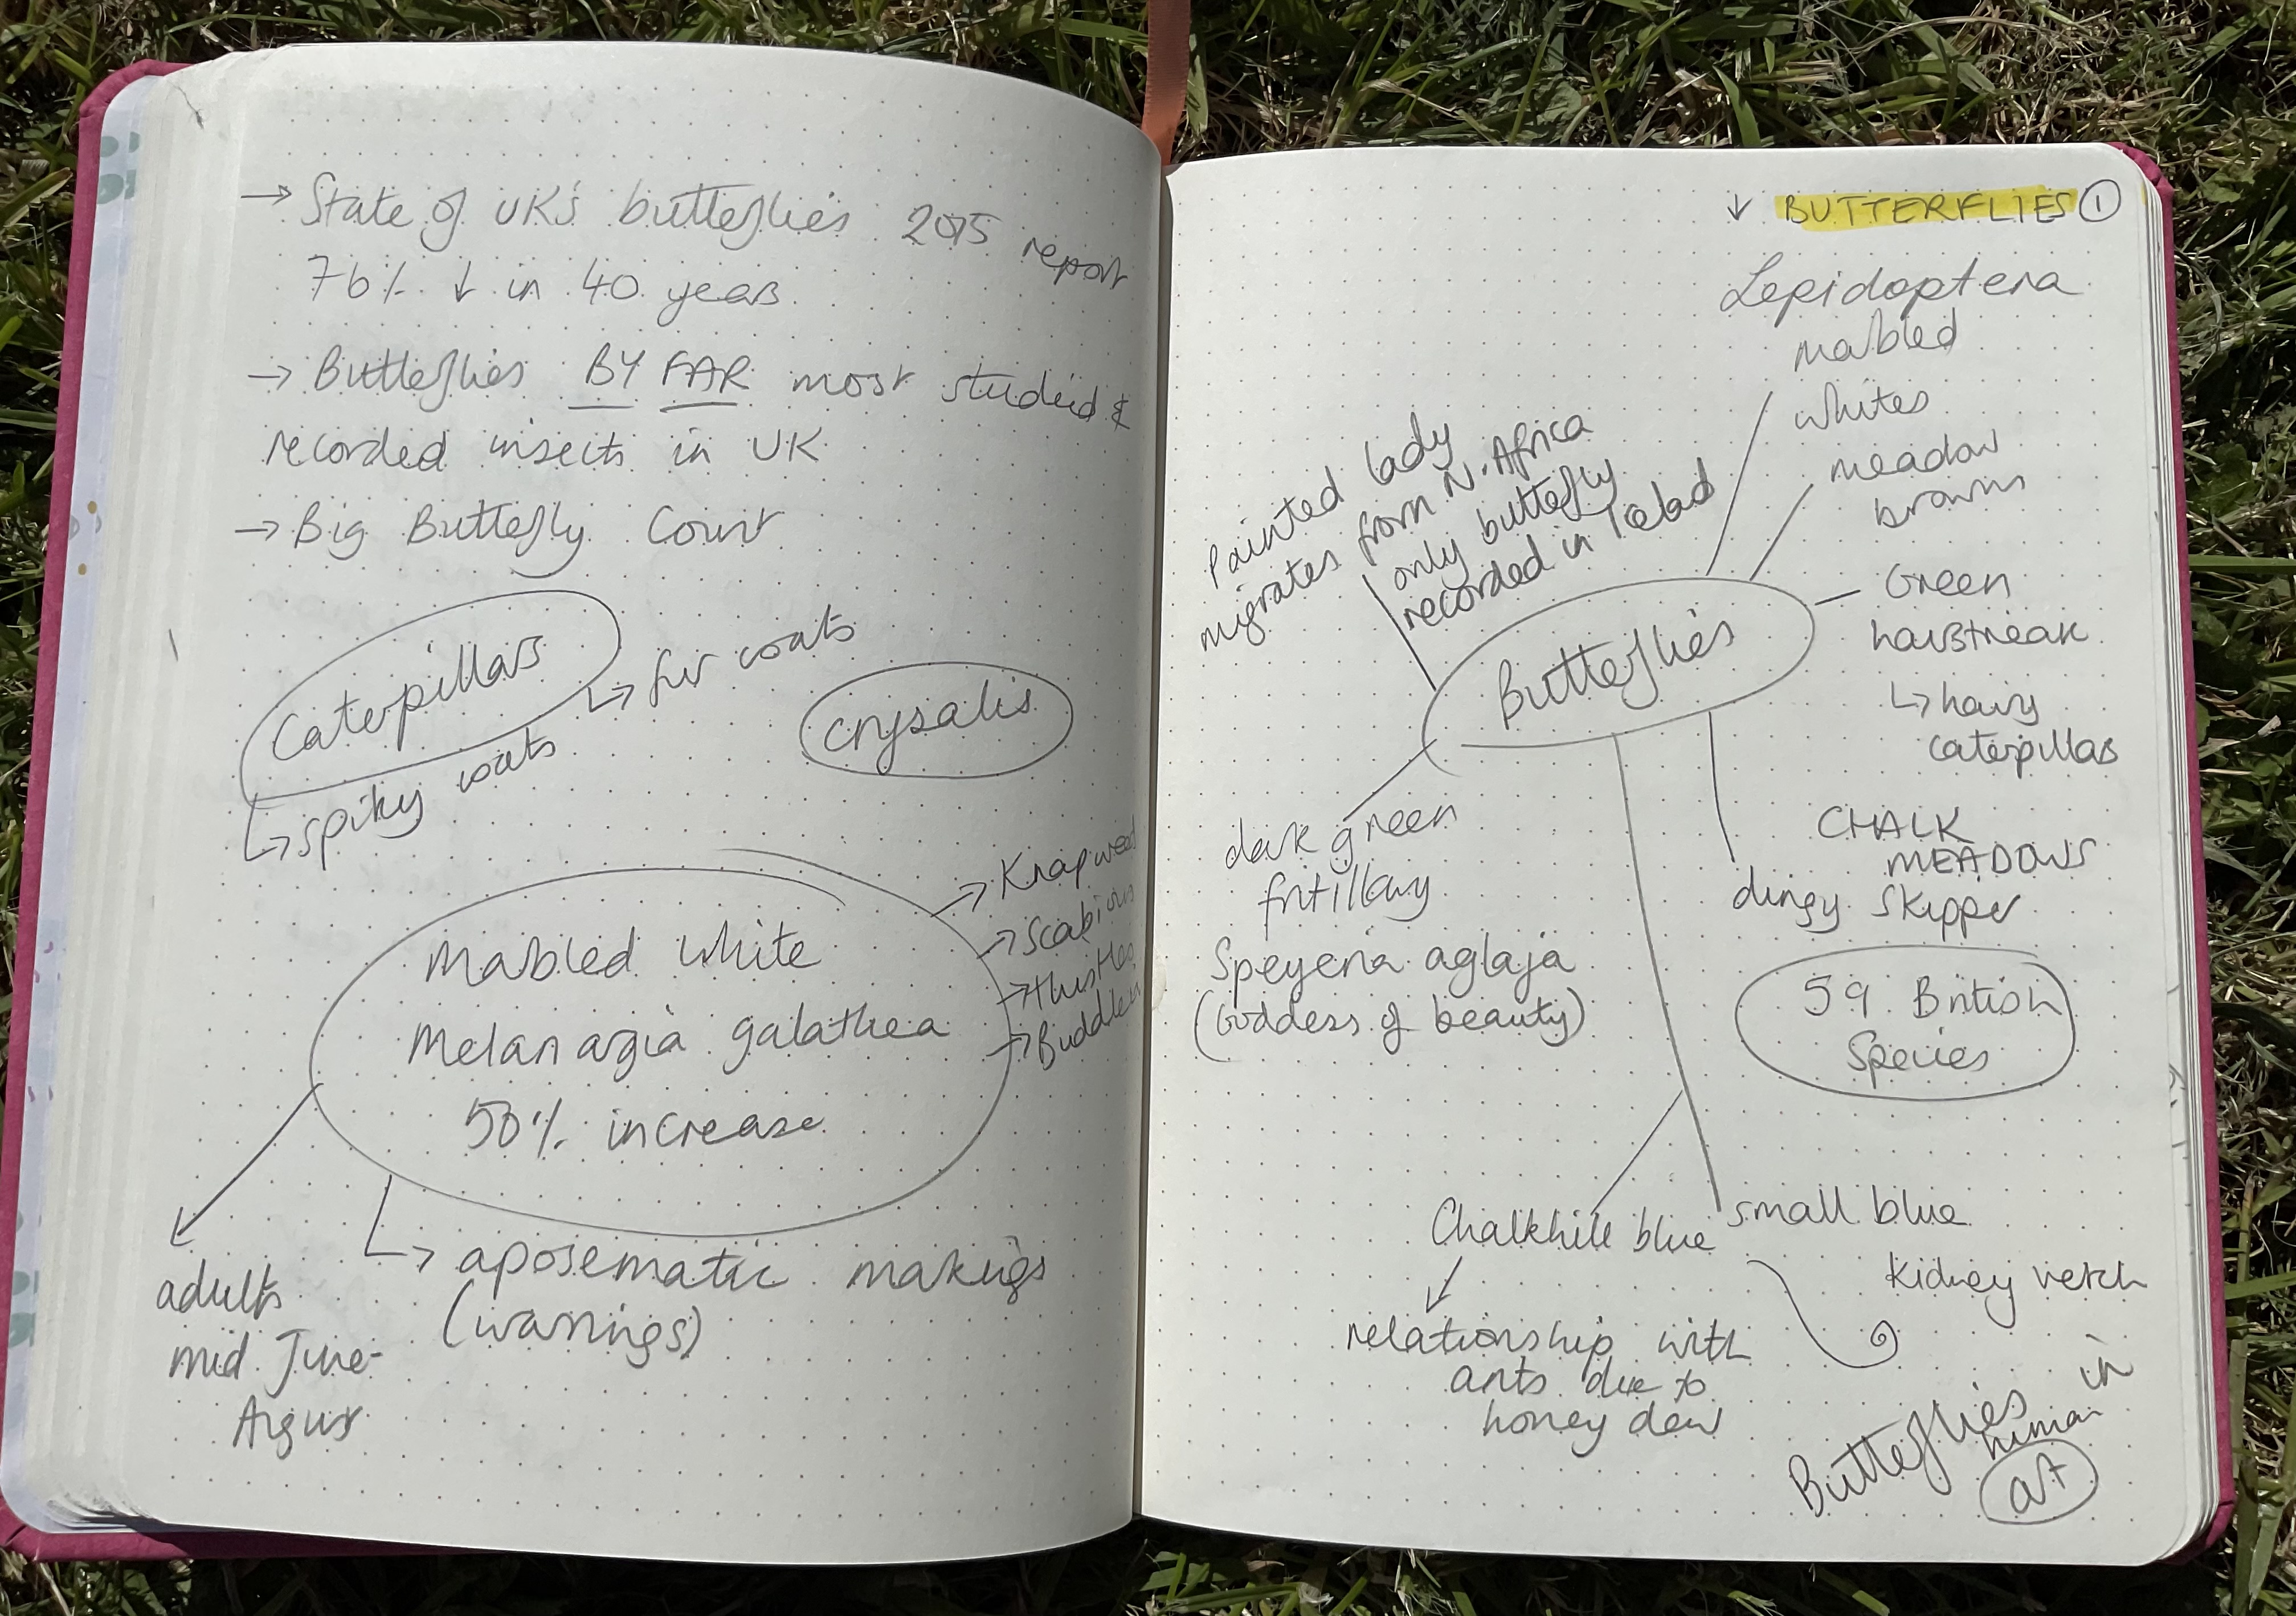 → State of UK's butterflies 2015 report
76% ↓ in 40 years
→ Butterflies BY FAR most studied &
recorded insects in UK
→ Big Butterfly Count
Caterpillars
↳ fur coats
crysalis
↳ spiky coats
Marbled white
Melanargia galathea
50% increase
→ Knapweed
→ Scabious
→ thistles
→ Buddleia
adults
mid June-
August
↳ aposematic markings
(warnings)
↓ BUTTERFLIES ①
Lepidoptera
marbled
whites
meadow
browns
Painted lady
migrates from N. Africa
only butterfly
recorded in Iceland
Butterflies
Green
hairstreak
↳ hairy
caterpillars
dark green
fritillary
Speyeria aglaja
(Goddess of beauty)
CHALK
MEADOWS
dingy skipper
59 British
Species
Chalkhill blue
small blue
kidney vetch
relationship with
ants due to
honey dew
Butterflies in
human
art